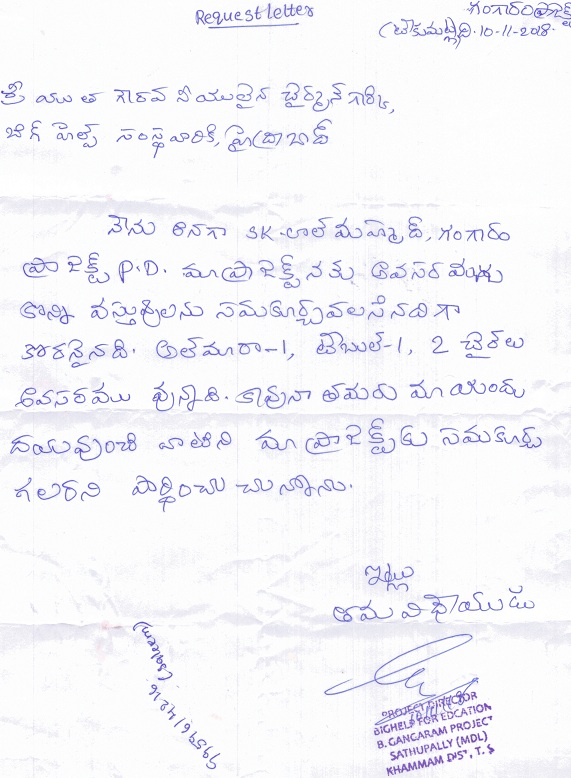 Request letter
గంగారం ప్రాజెక్ట్
10-11-2018.
శ్రీ యుత గౌరవ నీయులైన ఛైర్మన్ గార్కి,
బిగ్ హెల్ప్ సంస్థవారికి, హైద్రాబాద్
నేను అనగా SK. లాల్ మహ్మద్, గంగారం
ప్రాజెక్ట్ P.D. మా ప్రాజెక్ట్ నకు అవసరమగు
కొన్ని వస్తువులను సమకూర్చవలసినదిగా
కోరనైనది. అల్మారా-1, టేబుల్-1, 2 చైర్‌లు
అవసరము వున్నాది. కావునా తమరు మా యందు
దయవుంచి వాటిని మా ప్రాజెక్ట్‌కు సమకూర్చ
గలరని పార్థించు చున్నాను.
ఇట్లు
తమ విధేయుడు
9959614216 (saleem)
PROJECT DIRECTOR
BIGHELP FOR EDCATION
B. GANGARAM PROJECT
SATHUPALLY (MDL)
KHAMMAM DIST, T.S